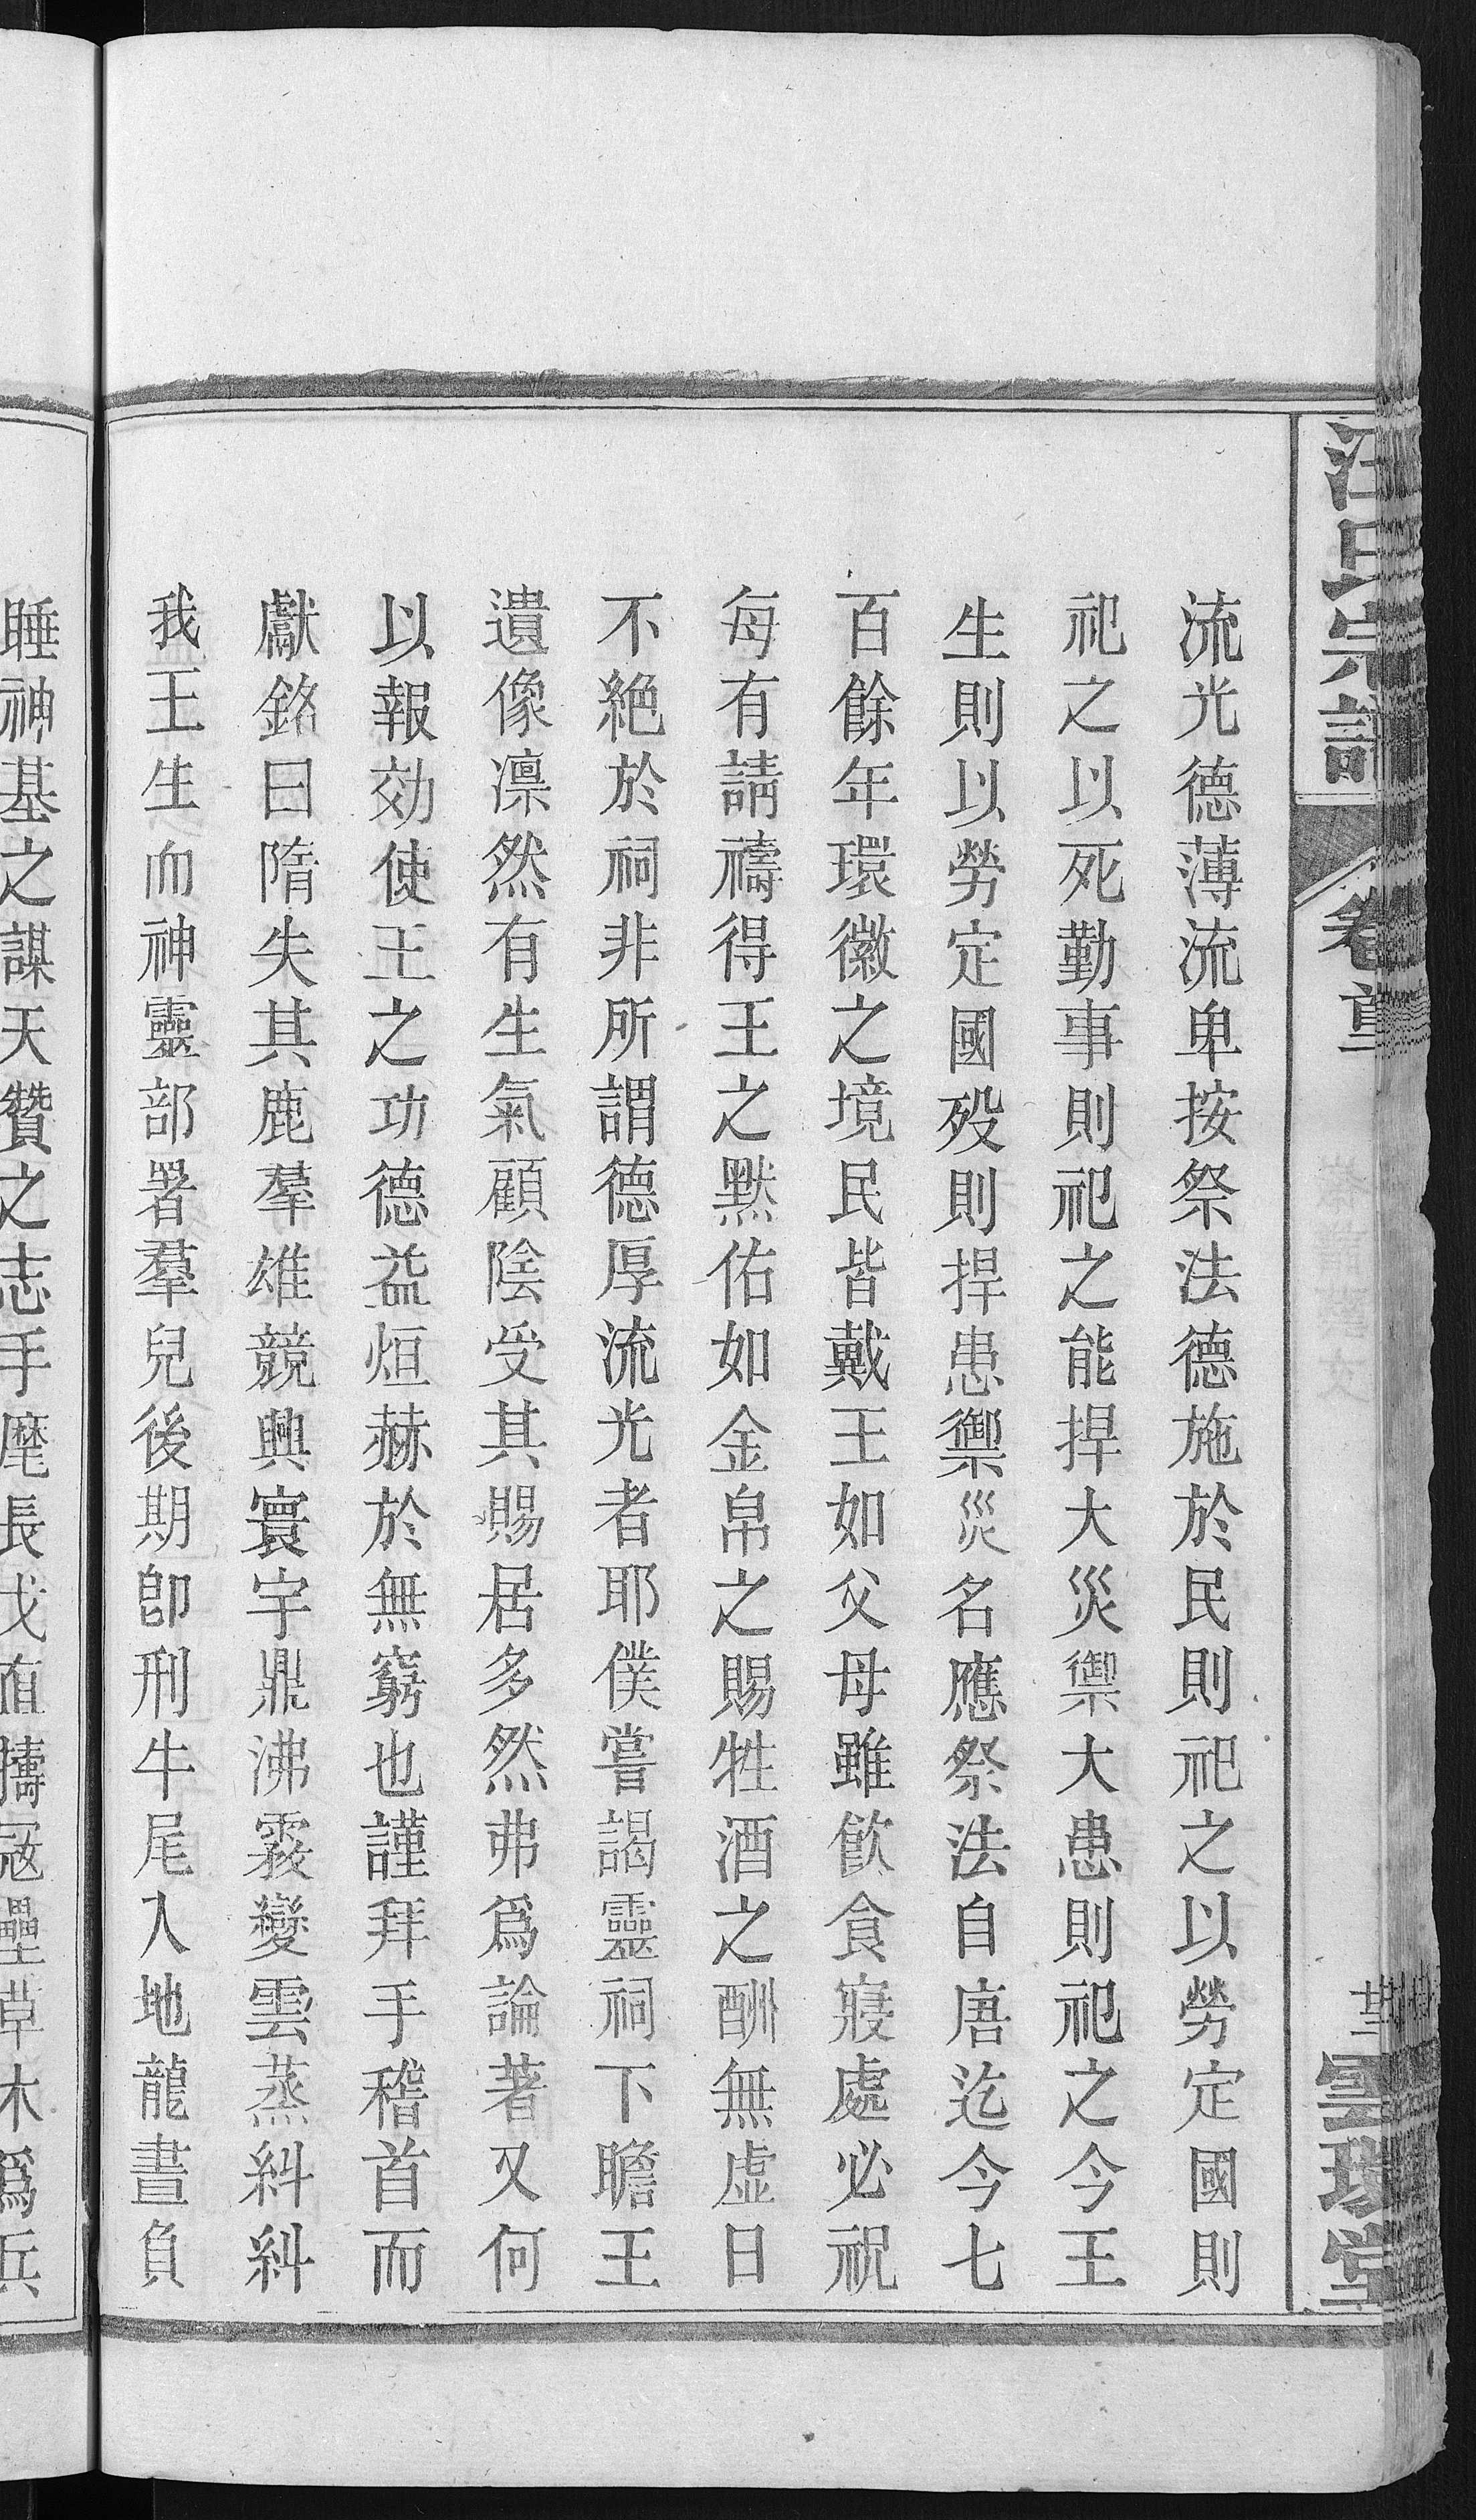 汪氏宗譜
卷首
雲瑞堂
流光德薄流卑按祭法德施於民則祀之以勞定國則
祀之以死勤事則祀之能捍大災禦大患則祀之今王
生則以勞定國歿則捍患禦災名應祭法自唐迄今七
百餘年環徽之境民皆戴王如父母雖飲食寢處必祝
每有請禱得王之默佑如金帛之賜牲酒之酬無虛日
不絶於祠非所謂德厚流光者耶僕嘗謁靈祠下瞻王
遺像凛然有生氣顧陰受其賜居多然弗爲論著又何
以報効使王之功德益烜赫於無窮也謹拜手稽首而
獻銘曰隋失其鹿羣雄競興寰宇鼎沸霧變雲蒸糾糾
我王生而神靈部署羣兒後期卽刑牛尾入地龍晝負
睡神基之謀天贊之志手麾長戈直擣寇壘草木爲兵